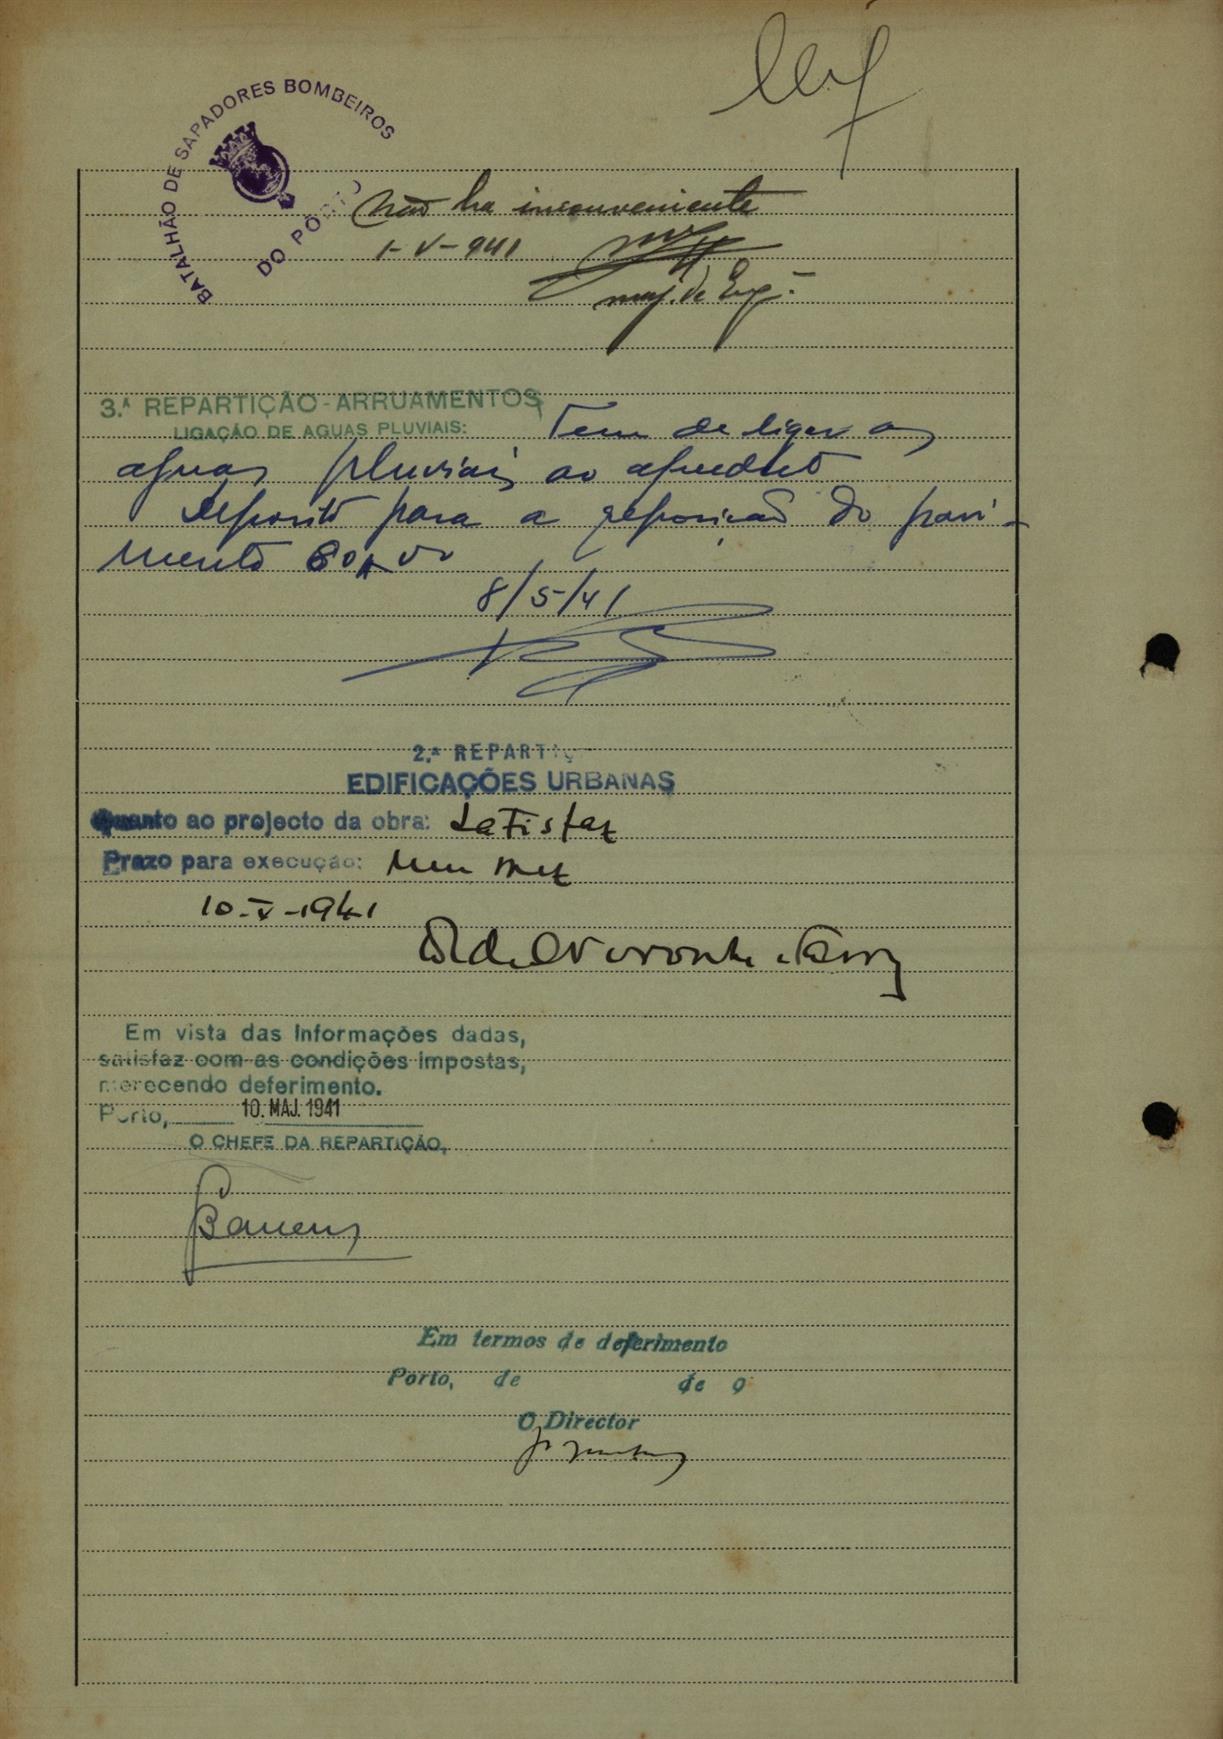 BATALHÃO DE SAPADORES BOMBEIROS
DO PORTO
Não ha inconveniente
1-V-941
maj. de Eng.
3.ª REPARTIÇÃO-ARRUAMENTOS
LIGAÇÃO DE AGUAS PLUVIAIS: Tem de ligar as
aguas pluviais ao aqueduto
Deposito para a reposição do pavi-
mento
8/5/41
2.ª REPARTIÇ
EDIFICAÇÕES URBANAS
Quanto ao projecto da obra: Satisfaz
Prazo para execução: Um mez
10-V-1941
Em vista das Informações dadas,
satisfaz com as condições impostas,
merecendo deferimento.
Porto, 10. MAI. 1941
O CHEFE DA REPARTIÇÃO,
Em termos de deferimento
Porto, de de 9
O Director